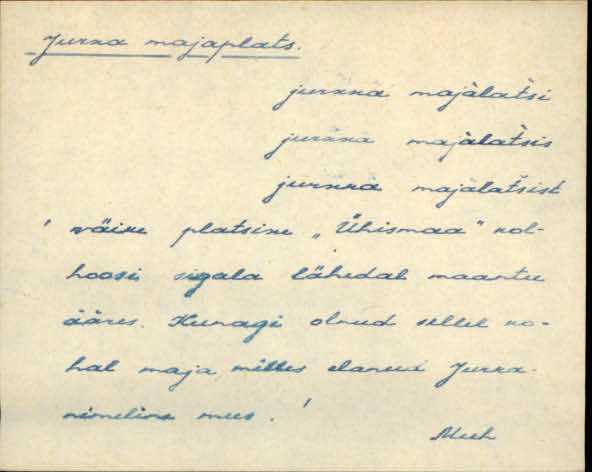 Jurna majaplats.
jurnna majàlatši
jurnna majàlatšis
jurnna majàlatšist
' väike platsike „Ühismaa" kol-
hoosi sigala lähedal maantee
ääres. Kunagi olnud sellel ko-
hal maja milles elanud
nimeline mees. '